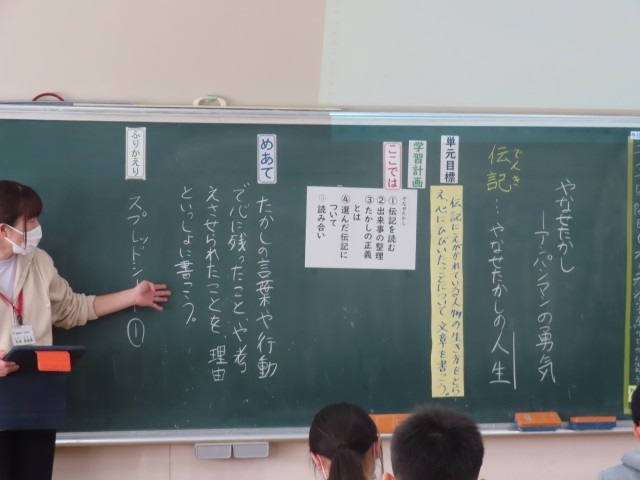 やなせたかし
―アンパンマンの勇気
でんき
伝記…やなせたかしの人生
単元目標
伝記にえがかれている人物の生き方をとらえ、心にひびいたことについて文章を書こう。
学習計画
ここでは
やなせたかし
①伝記を読む
②出来事の整理
③たかしの正義
とは
④選んだ伝記に
ついて
⑤読み合い
めあて
たかしの言葉や行動
で心に残ったこと、や考
えさせられたことを、理由
といっしょに書こう。
ふりかえり
スプレットシート①